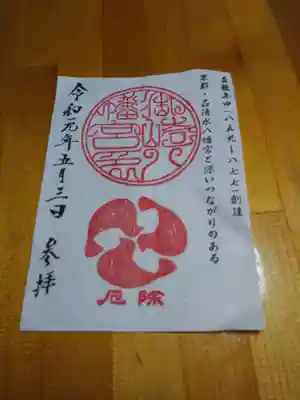 貞観年中(八五九～八七七)創建
京都・石清水八幡宮と深いつながりのある
厄除
令和元年五月三日
参拝